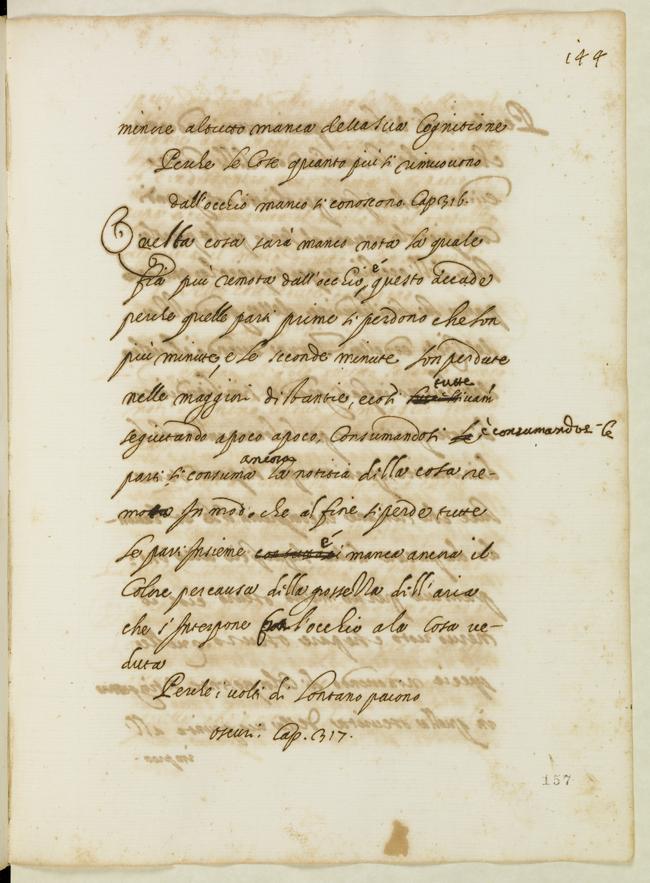 144
minuie al tutto manca della sua Cognitione
Perche le Cose quanto più si rimuovono
dall'occhio manco si conoscono. Cap. 316.
Quella cosa sarà manco nota la quale
fia più remota dall'occhio, è questo accade
perche quelle parti prime si perdono che son
più minute, e le seconde minute son perdute
nelle maggiori distantie, e così tutte
seguitando apoco apoco. Consumandosi è consumandose le
parti si consuma ancora la notitia della cosa re-
mota In modo che al fine si perde tutte
le parti Insieme é manca ancora il
Colore per causa della grossezza dell'aria
che s'Interpone fra l'occhio a la Cosa ve-
duta
Perche i volti di Lontano paiono
oscuri. Cap. 317.
157